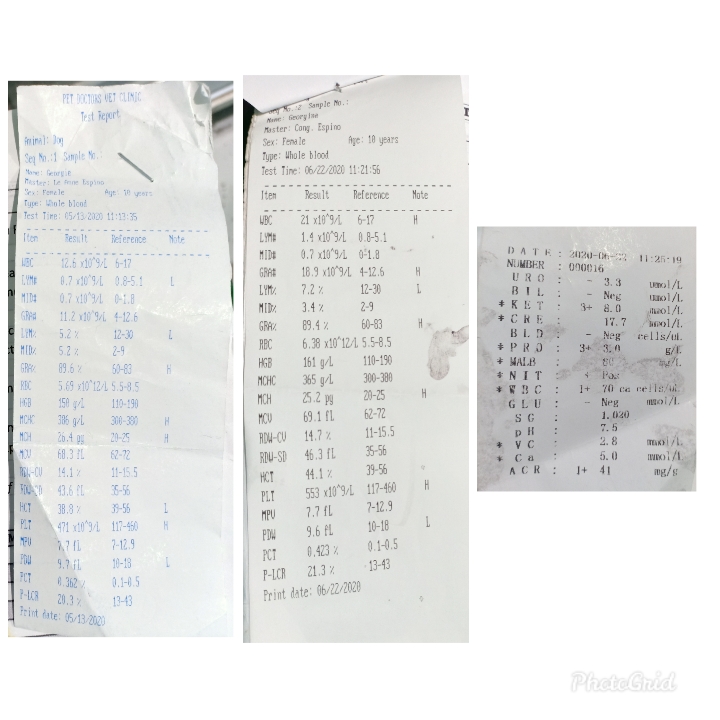 PET DOCTORS VET CLINIC
Test Report
Animal: Dog
Seq No.:1 Sample No.
Name: Georgie
Master: Le Anne Espino
Sex: Female Age: 10 years
Type: Whole blood
Test Time: 05/13/2020 11:13:35
Item Result Reference Note
WBC 12.6 x10^9/L 6-17
LYM# 0.7 x10^9/L 0.8-5.1 L
MID# 0.7 x10^9/L 0-1.8
GRA# 11.2 x10^9/L 4-12.6
LYM% 5.2 % 12-30 L
MID% 5.2 % 2-9
GRA% 89.6 % 60-83 H
RBC 5.69 x10^12/L 5.5-8.5
HGB 150 g/L 110-190
MCHC 386 g/L 300-380 H
MCH 26.4 pg 20-25 H
MCV 68.3 fL 62-72
RDW-CV 14.1 % 11-15.5
RDW-SD 43.6 fL 35-56
HCT 38.8 % 39-56 L
PLT 471 x10^9/L 117-460 H
MPV 7.7 fL 7-12.9
PDW 9.7 fL 10-18 L
PCT 0.362 % 0.1-0.5
P-LCR 20.3 % 13-43
Print date: 05/13/2020
Seq No.:2 Sample No.:
Name: Georgina
Master: Cong. Espino
Sex: Female Age: 10 years
Type: Whole blood
Test Time: 06/22/2020 11:21:56
Item Result Reference Note
WBC 21 x10^9/L 6-17 H
LYM# 1.4 x10^9/L 0.8-5.1
MID# 0.7 x10^9/L 0-1.8
GRA# 18.9 x10^9/L 4-12.6 H
LYM% 7.2 % 12-30 L
MID% 3.4 % 2-9
GRA% 89.4 % 60-83 H
RBC 6.38 x10^12/L 5.5-8.5
HGB 161 g/L 110-190
MCHC 365 g/L 300-380
MCH 25.2 pg 20-25 H
MCV 69.1 fL 62-72
RDW-CV 14.7 % 11-15.5
RDW-SD 46.3 fL 35-56
HCT 44.1 % 39-56
PLT 553 x10^9/L 117-460 H
MPV 7.7 fL 7-12.9
PDW 9.6 fL 10-18 L
PCT 0.423 % 0.1-0.5
P-LCR 21.3 % 13-43
Print date: 06/22/2020
DATE : 11:25:19
NUMBER : 000016
URO : - 3.3 umol/L
BIL : - Neg umol/L
* KET : 3+ 8.0 mmol/L
* CRE : 17.7 mmol/L
BLD : - Neg cells/uL
* PRO : 3+ 3.0 g/L
* MALB : mg/L
* NIT : + Pos
* WBC : 1+ 70 ca cells/uL
GLU : - Neg mmol/L
SG : 1.020
pH : 7.5
* VC : 2.8 mmol/L
* Ca : 5.0 mmol/L
ACR : 1+ 41 mg/g
PhotoGrid